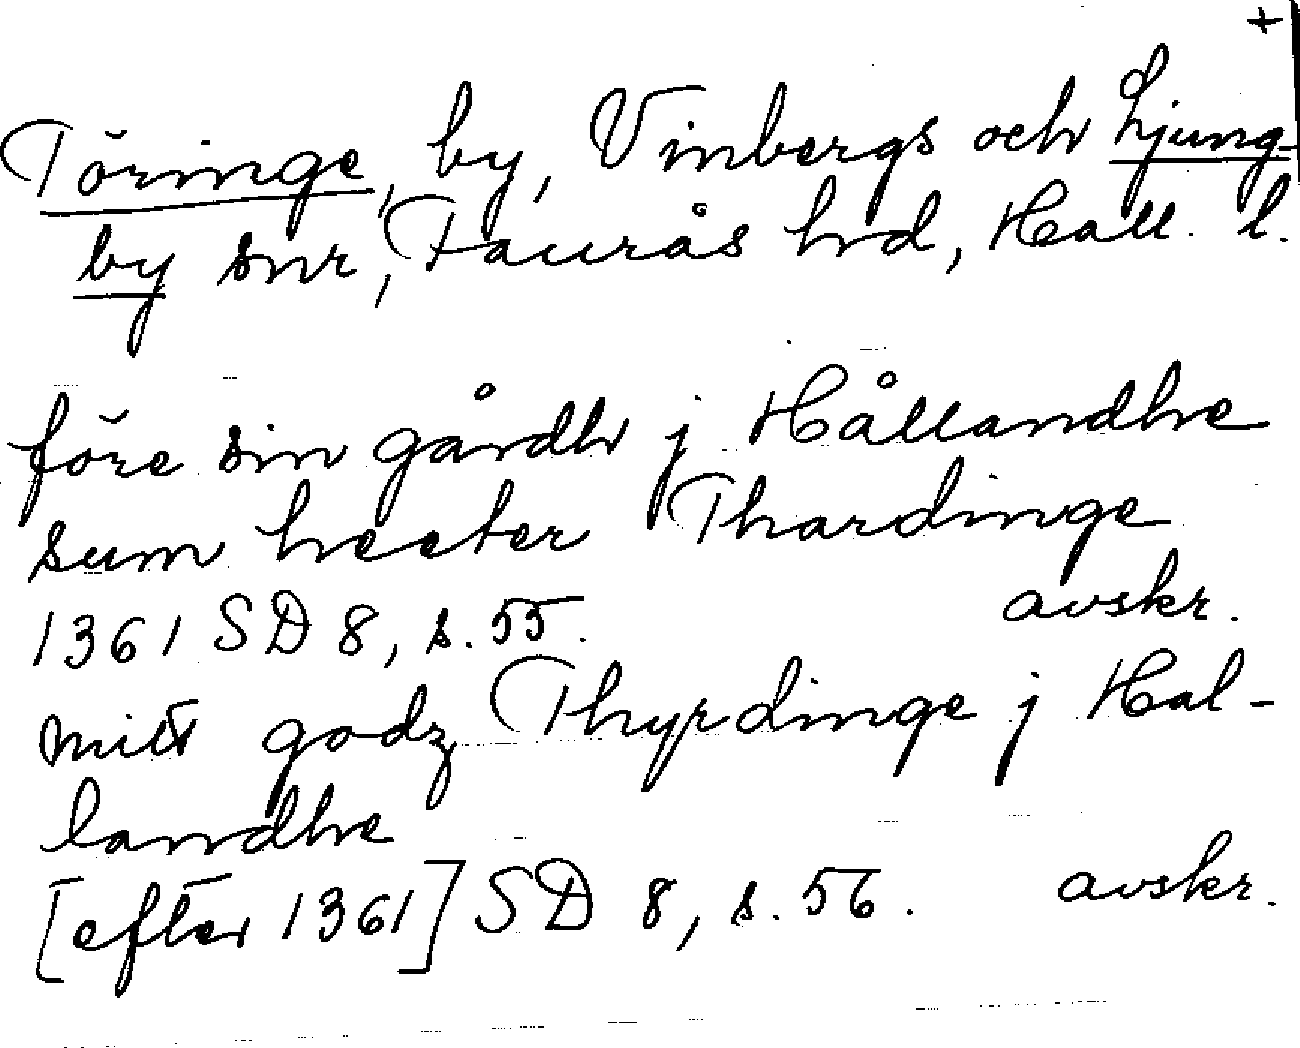 +
Töringe, by, Vinbergs och Ljung-
by snr, Faurås hrd, Hall. l.
före sin gårdh j Hållandhe
sum heeter Thardinge
1361 SD 8, s. 55. avskr.
mitt godz Thyrdinge j Hal-
landhe
[efter 1361] SD 8, s. 56. avskr.